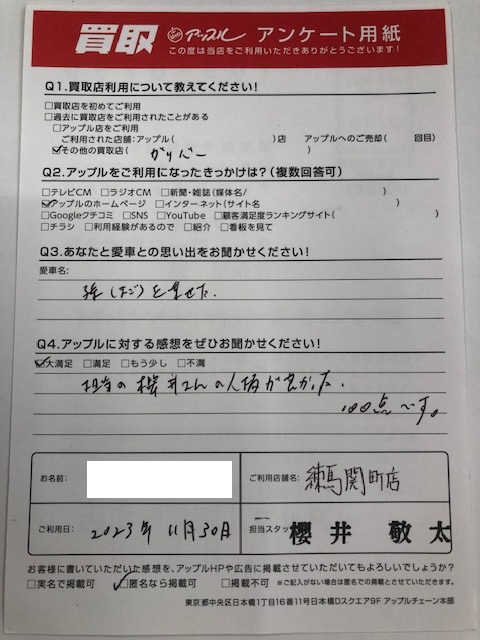 買取 アップル アンケート用紙
この度は当店をご利用いただきありがとうございます!
Q1.買取店利用について教えてください!
□買取店を初めてご利用
□過去に買取店をご利用されたことがある
□アップル店をご利用
ご利用された店舗:アップル( )店 アップルへのご売却( 回目)
☑その他の買取店( ガリバー
Q2.アップルをご利用になったきっかけは?(複数回答可)
□テレビCM □ラジオCM □新聞・雑誌(媒体名/ )
☑アップルのホームページ □インターネット(サイト名 )
□Googleクチコミ □SNS □YouTube □顧客満足度ランキングサイト( )
□チラシ □利用経験があるので □紹介 □看板を見て
Q3.あなたと愛車との思い出をお聞かせください!
愛車名:
孫(まご)を乗せた.
Q4.アップルに対する感想をぜひお聞かせください!
☑大満足 □満足 □もう少し □不満
担当の櫻井さんの人柄が良かった.
100点〜す。
お名前:
ご利用店舗名: 練馬関町店
ご利用日: 2023年 11月30日
担当スタッフ 櫻井 敬太
お客様に書いていただいた感想を、アップルHPや広告に掲載させていただいてもよろしいでしょうか?
□実名で掲載可 ☑匿名なら掲載可 □掲載不可 ※ご記入がない場合は匿名での掲載とさせていただきます。
東京都中央区日本橋1丁目16番11号日本橋Dスクエア9F アップルチェーン本部